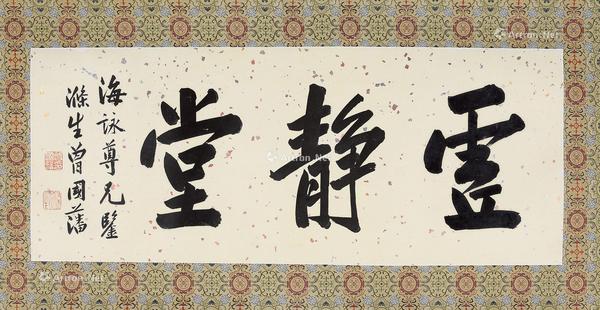 静堂
海詠尊兄鑒
滌生曾國藩
Artron.Net
Artron.Net
Artron.Net